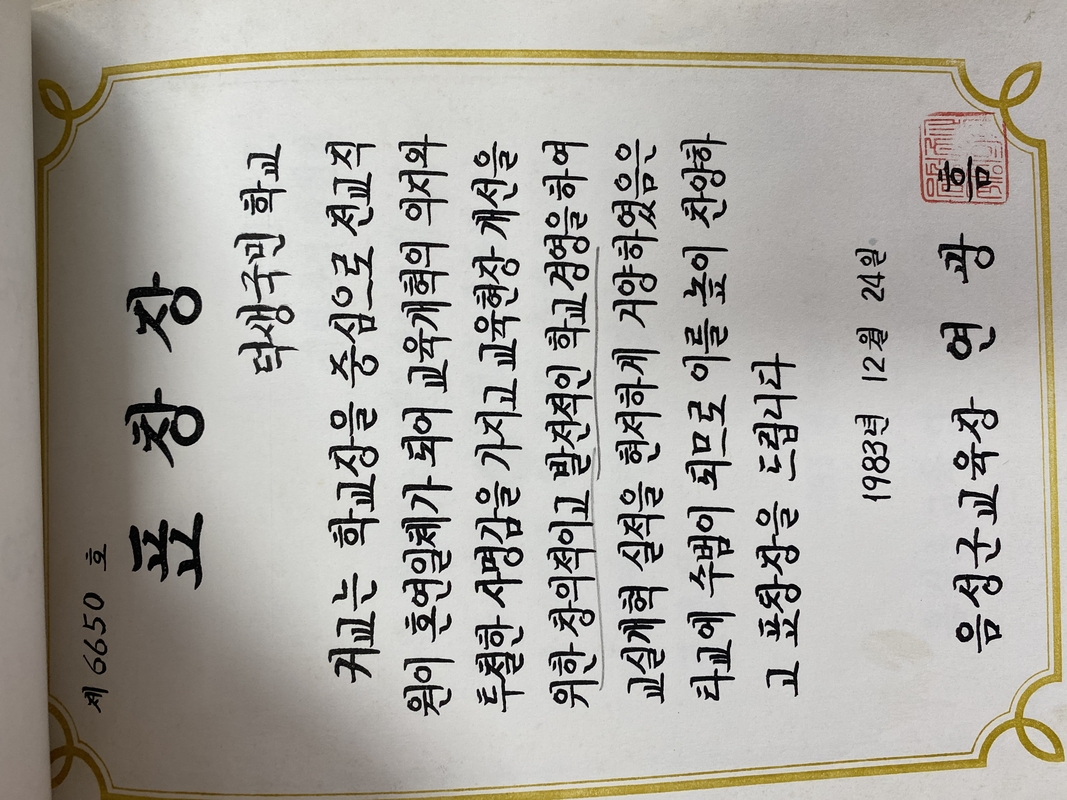 제 6650 호
표 창 장
덕생국민 학교
귀교는 학교장을 중심으로 전교직
원이 혼연일체가 되어 교육개혁의 의지와
투철한 사명감을 가지고 교육현장 개선을
위한 창의적이고 발전적인 학교경영을하여
교실개혁 실적을 현저하게 거양하였음은
타교에 수범이 되므로 이를 높이 찬양하
고 표창장을 드립니다
1983년 12월 24일
음성군교육장 연 광 흠